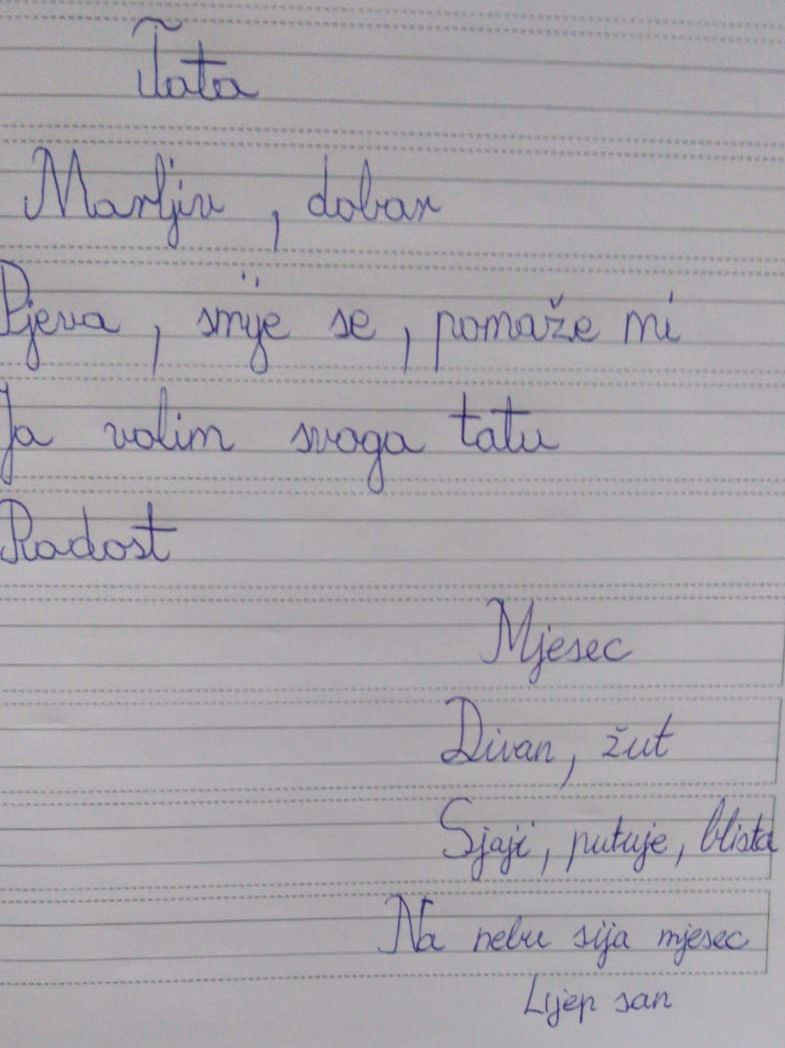 Tata
Marljiv, dobar
Pjeva, smije se, pomaže mi
Ja volim svoga tatu
Radost
Mjesec
Divan, žut
Sjaji, putuje, blista
Na nebu sija mjesec
Lijep san